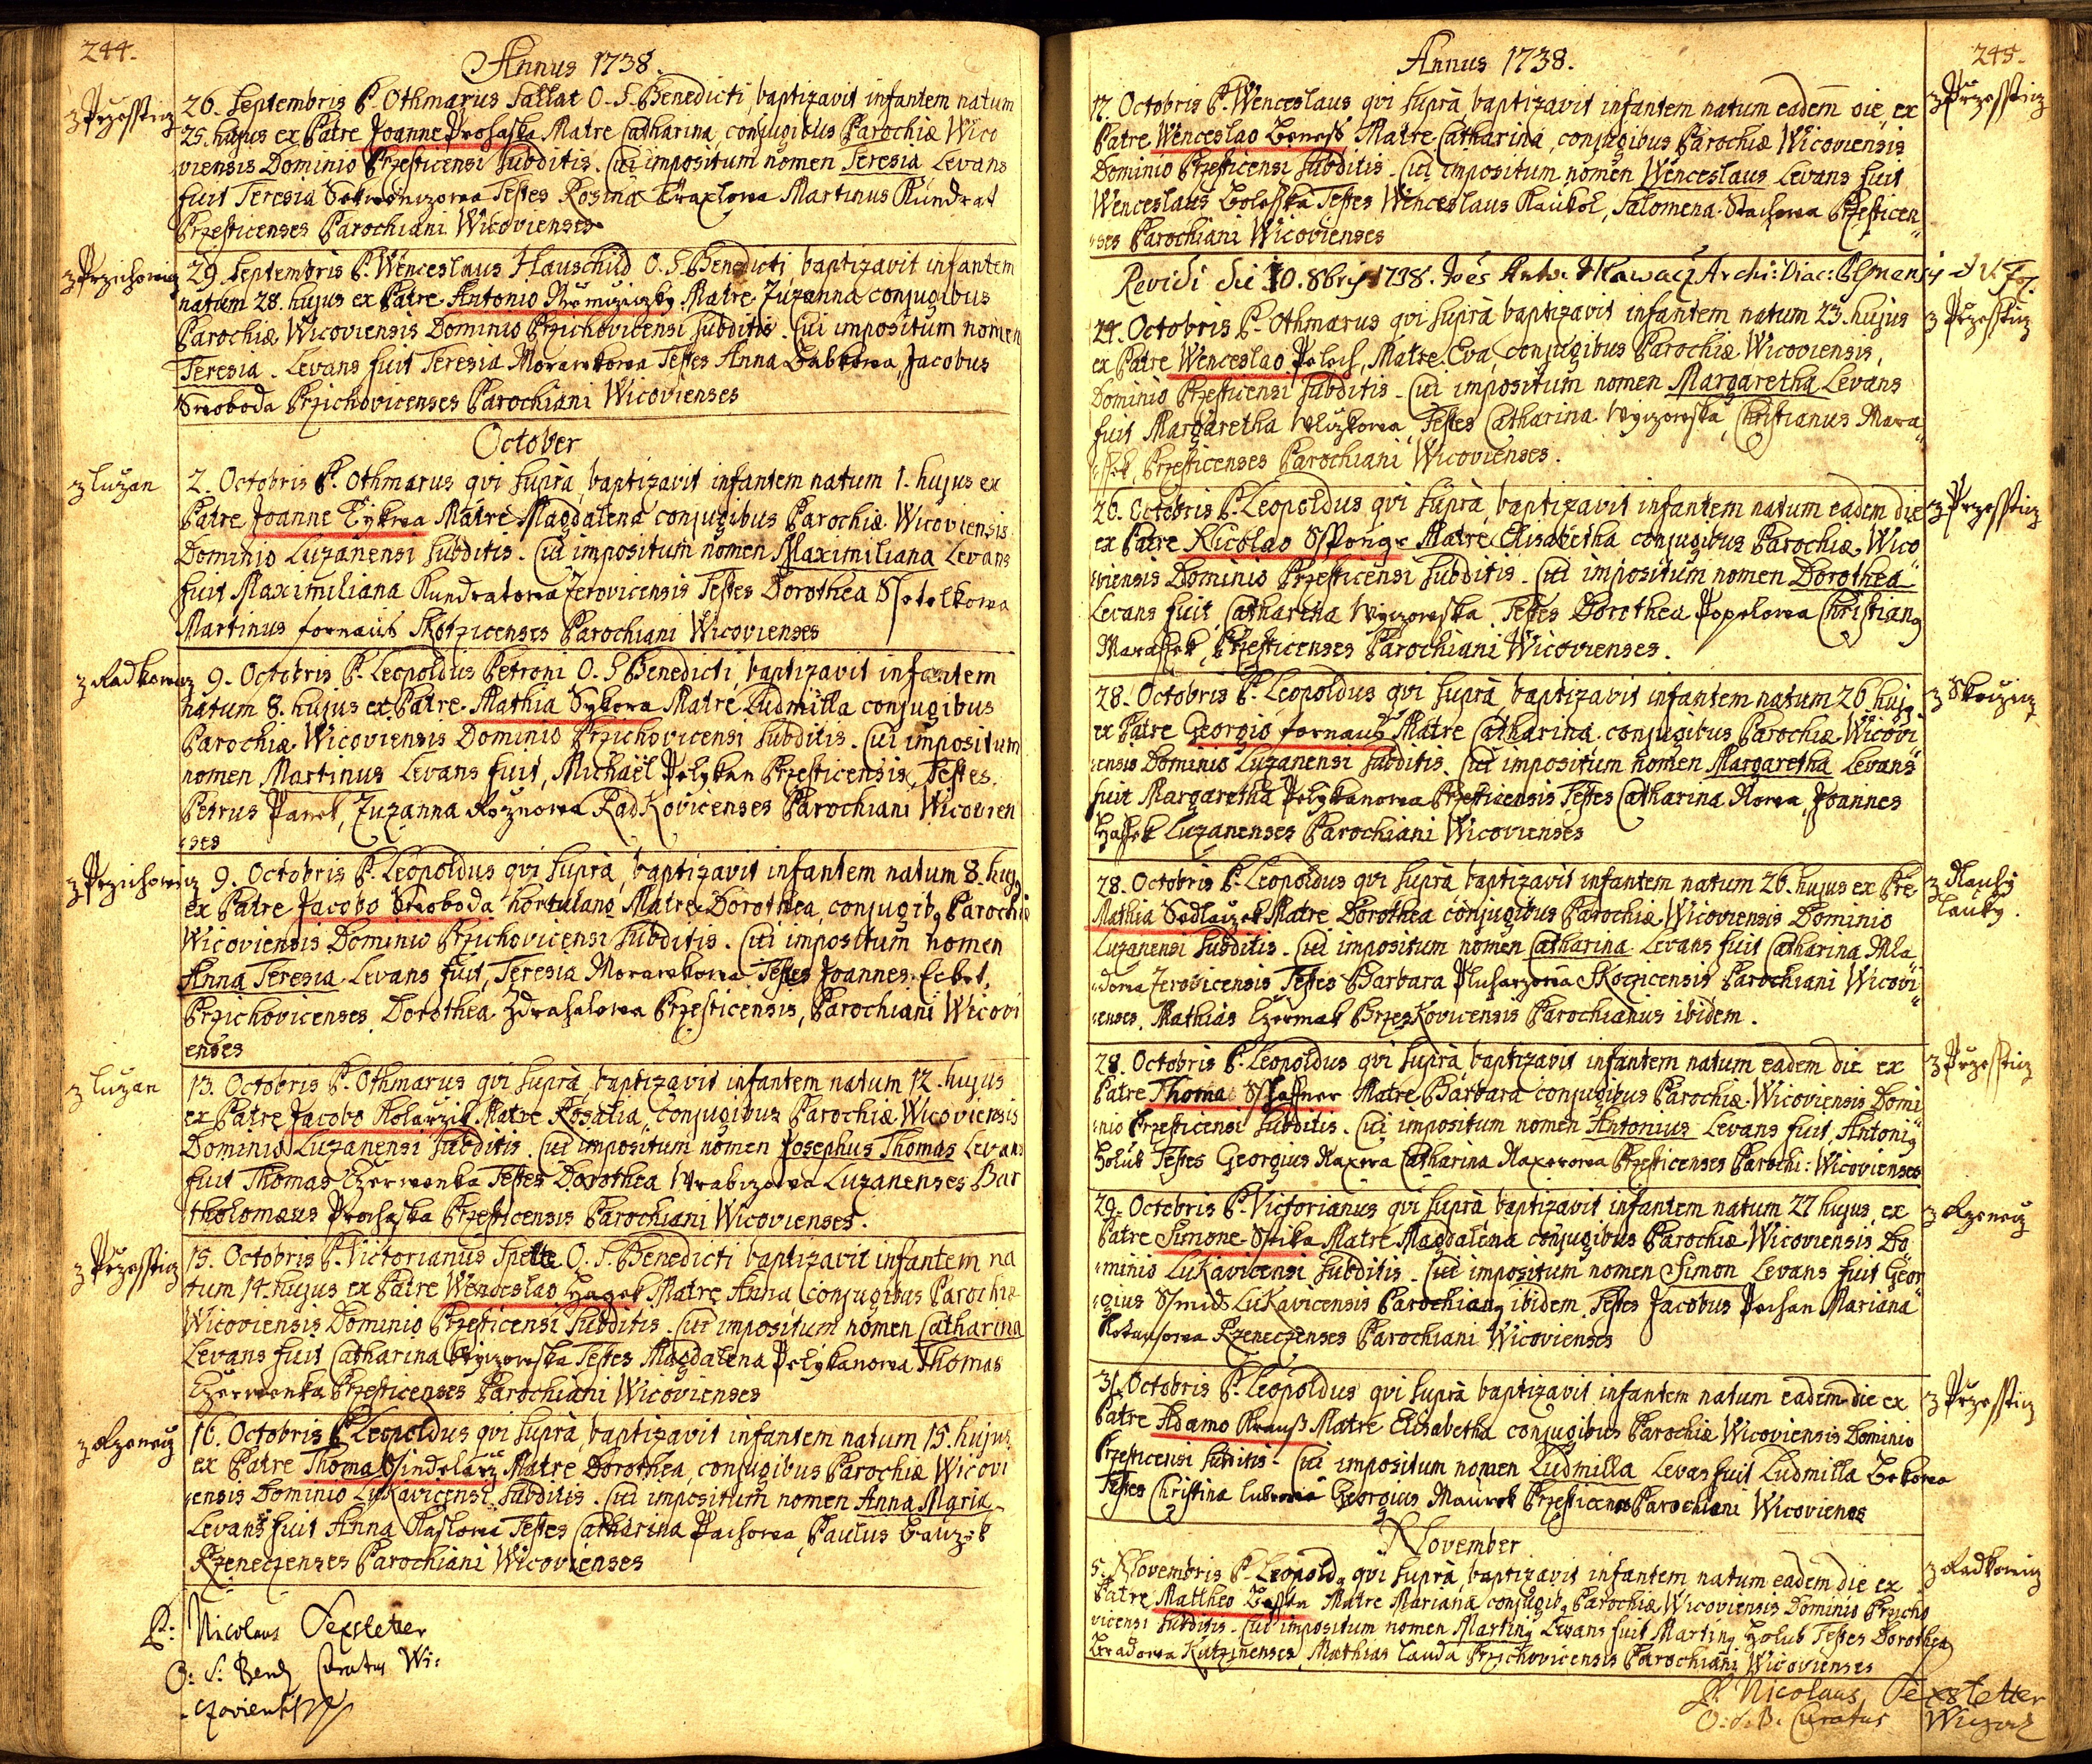 244.
Annus 1738.
z Przessticz
26. Septembris P. Othmarus Sallat O. S. Benedicti, baptizavit infantem natum
25. hujus ex Patre Joanne Prohaska Matre Catharina, conjugibus Parochiæ Wico
viensis Dominio Przesticensi Subditis. Cui impositum nomen Teresia Levans
fuit Teresia Testes Rosina Martinus Kundrat
Przesticenses Parochiani Wicovienses
z Przichowicz
29. Septembris P. Wenceslaus Hauschild O. S. Benedicti baptizavit infantem
natum 28. hujus ex Patre Antonio Matre Zuzanna conjugibus
Parochiæ Wicoviensis Dominio Przichovicensi Subditis. Cui impositum nomen
Teresia. Levans fuit Teresia Morawkowa Testes Anna Babkowa, Jacobus
Swoboda Przichovicenses Parochiani Wicovienses
October
z Luzan
2. Octobris P. Othmarus qvi supra, baptizavit infantem natum 1. hujus ex
Patre Joanne Matre Magdalena conjugibus Parochiæ Wicoviensis
Dominio Luzanensi Subditis. Cui impositum nomen Maximiliana Levans
fuit Maximiliana Kundratowa Zerovicensis Testes Dorothea
Martinus fornaus Skotzicenses Parochiani Wicovienses
z Radkowicz
9. Octobris P. Leopoldus Petroni O. S Benedicti, baptizavit infantem
natum 8. hujus ex Patre Mathia Sykora Matre Ludmilla conjugibus
Parochiæ Wicoviensis Dominio Przichovicensi Subditis. Cui impositum
nomen Martinus Levans fuit, Michaël Pelykan Przesticensis, Testes
Petrus Pawel, Zuzanna Roznowa RadKovicenses Parochiani Wicovien
ses
z Przichowicz
9. Octobris P. Leopoldus qvi supra, baptizavit infantem natum 8. huj9
ex Patre Jacobo Swoboda hortulano Matre Dorothea, conjugib9 Parochiæ
Wicoviensis Dominio Przichovicensi Subditis. Cui impositum nomen
Anna Teresia Levans fuit, Teresia Morawkowa Testes Joannes
Przichovicenses Dorothea Zdrahalowa Przesticensis, Parochiani Wicovi
enses
z Luzan
13. Octobris P. Othmarus qvi supra, baptizavit infantem natum 12. hujus
ex Patre Jacobo Kolarzik Matre Rosalia, conjugibus Parochiæ Wicoviensis
Dominio Luzanensi Subditis. Cui impositum nomen Josephus Thomas Levans
fuit Thomas Czerwenka Testes Dorothea Luzanenses Bar
tholomæus Prohaska Przesticensis Parochiani Wicovienses.
z Przessticz
15. Octobris P. Victorianus Spette O. S. Benedicti baptizavit infantem na
tum 14. hujus ex Patre Wenceslao Hagek Matre Anna conjugibus Parochiæ
Wicoviensis Dominio Przesticensi Subditis. Cui impositum nomen Catharina
Levans fuit Catharina Testes Magdalena Pelykanowa Thomas
Czerwenka Przesticenses Parochiani Wicovienses
z Rzenecz
16. Octobris P. Leopoldus qvi supra, baptizavit infantem natum 15. hujus
ex Patre Thoma Ssindelarz Matre Dorothea, conjugibus Parochiæ Wicovi
ensis Dominio LuKavicensi Subditis. Cui impositum nomen Anna Maria
Levans fuit Anna Testes Catharina Pachowa, Paulus
Rzeneczenses Parochiani Wicovienses
P: Nicolaus Sexstetter
O: S: Bened Curatus Wi:
czoviensis
Annus 1738.
245.
z Przessticz
17. Octobris P. Wenceslaus qvi supra, baptizavit infantem natum eadem die, ex
Patre Wenceslao Beness Matre Catharina, conjugibus Parochiæ Wicoviensis
Dominio Przesticensi Subditis. Cui impositum nomen Wenceslaus Levans fuit
Wenceslaus Testes Wenceslaus Kaukol, Salomena Stachowa Przesticen
ses Parochiani Wicovienses
Revidi die 10. 8bris 1738. Archi: Diac: Plsnensis
z Przessticz
24. Octobris P. Othmarus qvi supra baptizavit infantem natum 23. hujus
ex Patre Wenceslao Matre Eva, conjugibus Parochiæ Wicoviensis,
Dominio Przesticensi Subditis. Cui impositum nomen Margaretha Levans
fuit Margaretha Testes Catharina Christianus Mara
ssek, Przesticenses Parochiani Wicovienses.
z Przessticz
26. Octobris P. Leopoldus qvi supra, baptizavit infantem natum eadem die
ex Patre Nicolao Matre Elisabetha conjugibus Parochiæ Wico
viensis Dominio Przesticensi Subditis. Cui impositum nomen Dorothea
Levans fuit, Catharina Testes Dorothea Popelowa Christian9
Marassek, Przesticenses Parochiani Wicovienses.
z Skoczicz
28. Octobris P. Leopoldus qvi supra, baptizavit infantem natum 26. huj9
ex Patre Georgio fornaus Matre Catharina conjugibus Parochiæ Wicovi
ensis Dominio Luzanensi Subditis. Cui impositum nomen Margaretha Levans
fuit Margaretha Pelykanowa Przesticensis Testes Catharina Joannes
Luzanenses Parochiani Wicovienses
28. Octobris P. Leopoldus qvi supra, baptizavit infantem natum 26. hujus ex Pre
Mathia Sedlaczek Matre Dorothea conjugibus Parochiæ Wicoviensis Dominio
Luzanensi Subditis. Cui impositum nomen Catharina Levans fuit Catharina Mla
dowa Zerovicensis Testes Barbara Skoczicensis Parochiani Wicovi
enses, Mathias Czermak PrzesKovicensis Parochianus ibidem.
z Przessticz
28. Octobris P. Leopoldus qvi supra, baptizavit infantem natum eadem die ex
Patre Thoma Matre Barbara conjugibus Parochiæ Wicoviensis Domi
nio Przesticensi Subditis. Cui impositum nomen Antonius Levans fuit, Antoni9
Holub Testes Georgius Catharina Przesticenses Parochi: Wicovienses
z Rzenecz
29. Octobris P. Victorianus qvi supra baptizavit infantem natum 27 hujus ex
Patre Simone Matre Magdalena conjugibus Parochiæ Wicoviensis Do
minio LuKavicensi Subditis. Cui impositum nomen Simon Levans fuit Geor
gius LuKavicensis Parochian9 ibidem Testes Jacobus Mariana
Rzeneczenses Parochiani Wicovienses
z Przessticz
31. Octobris P. Leopoldus qvi supra baptizavit infantem natum eadem die ex
Patre Adamo Krauß Matre Elisabetha conjugibus Parochiæ Wicoviensis Dominio
Przesticensi Subditis. Cui impositum nomen Ludmilla Levas fuit Ludmilla
Testes Christina Georgius Maurek Parochiani
November
z Radkowicz
5. Novembris P. Leopold9 qvi supra, baptizavit infantem natum eadem die ex
Patre Mattheo Matre Mariana conjugib9 Parochiæ Wicoviensis Dominio Przicho
vicensi Subditis. Cui impositum nomen Martin9 Levans fuit Martin9 Holub Testes Dorothea
Mathias Lauda Przichovicensis Parochiani Wicovienses
P. Nicolaus Sexstetter
O: S. B. Curatus